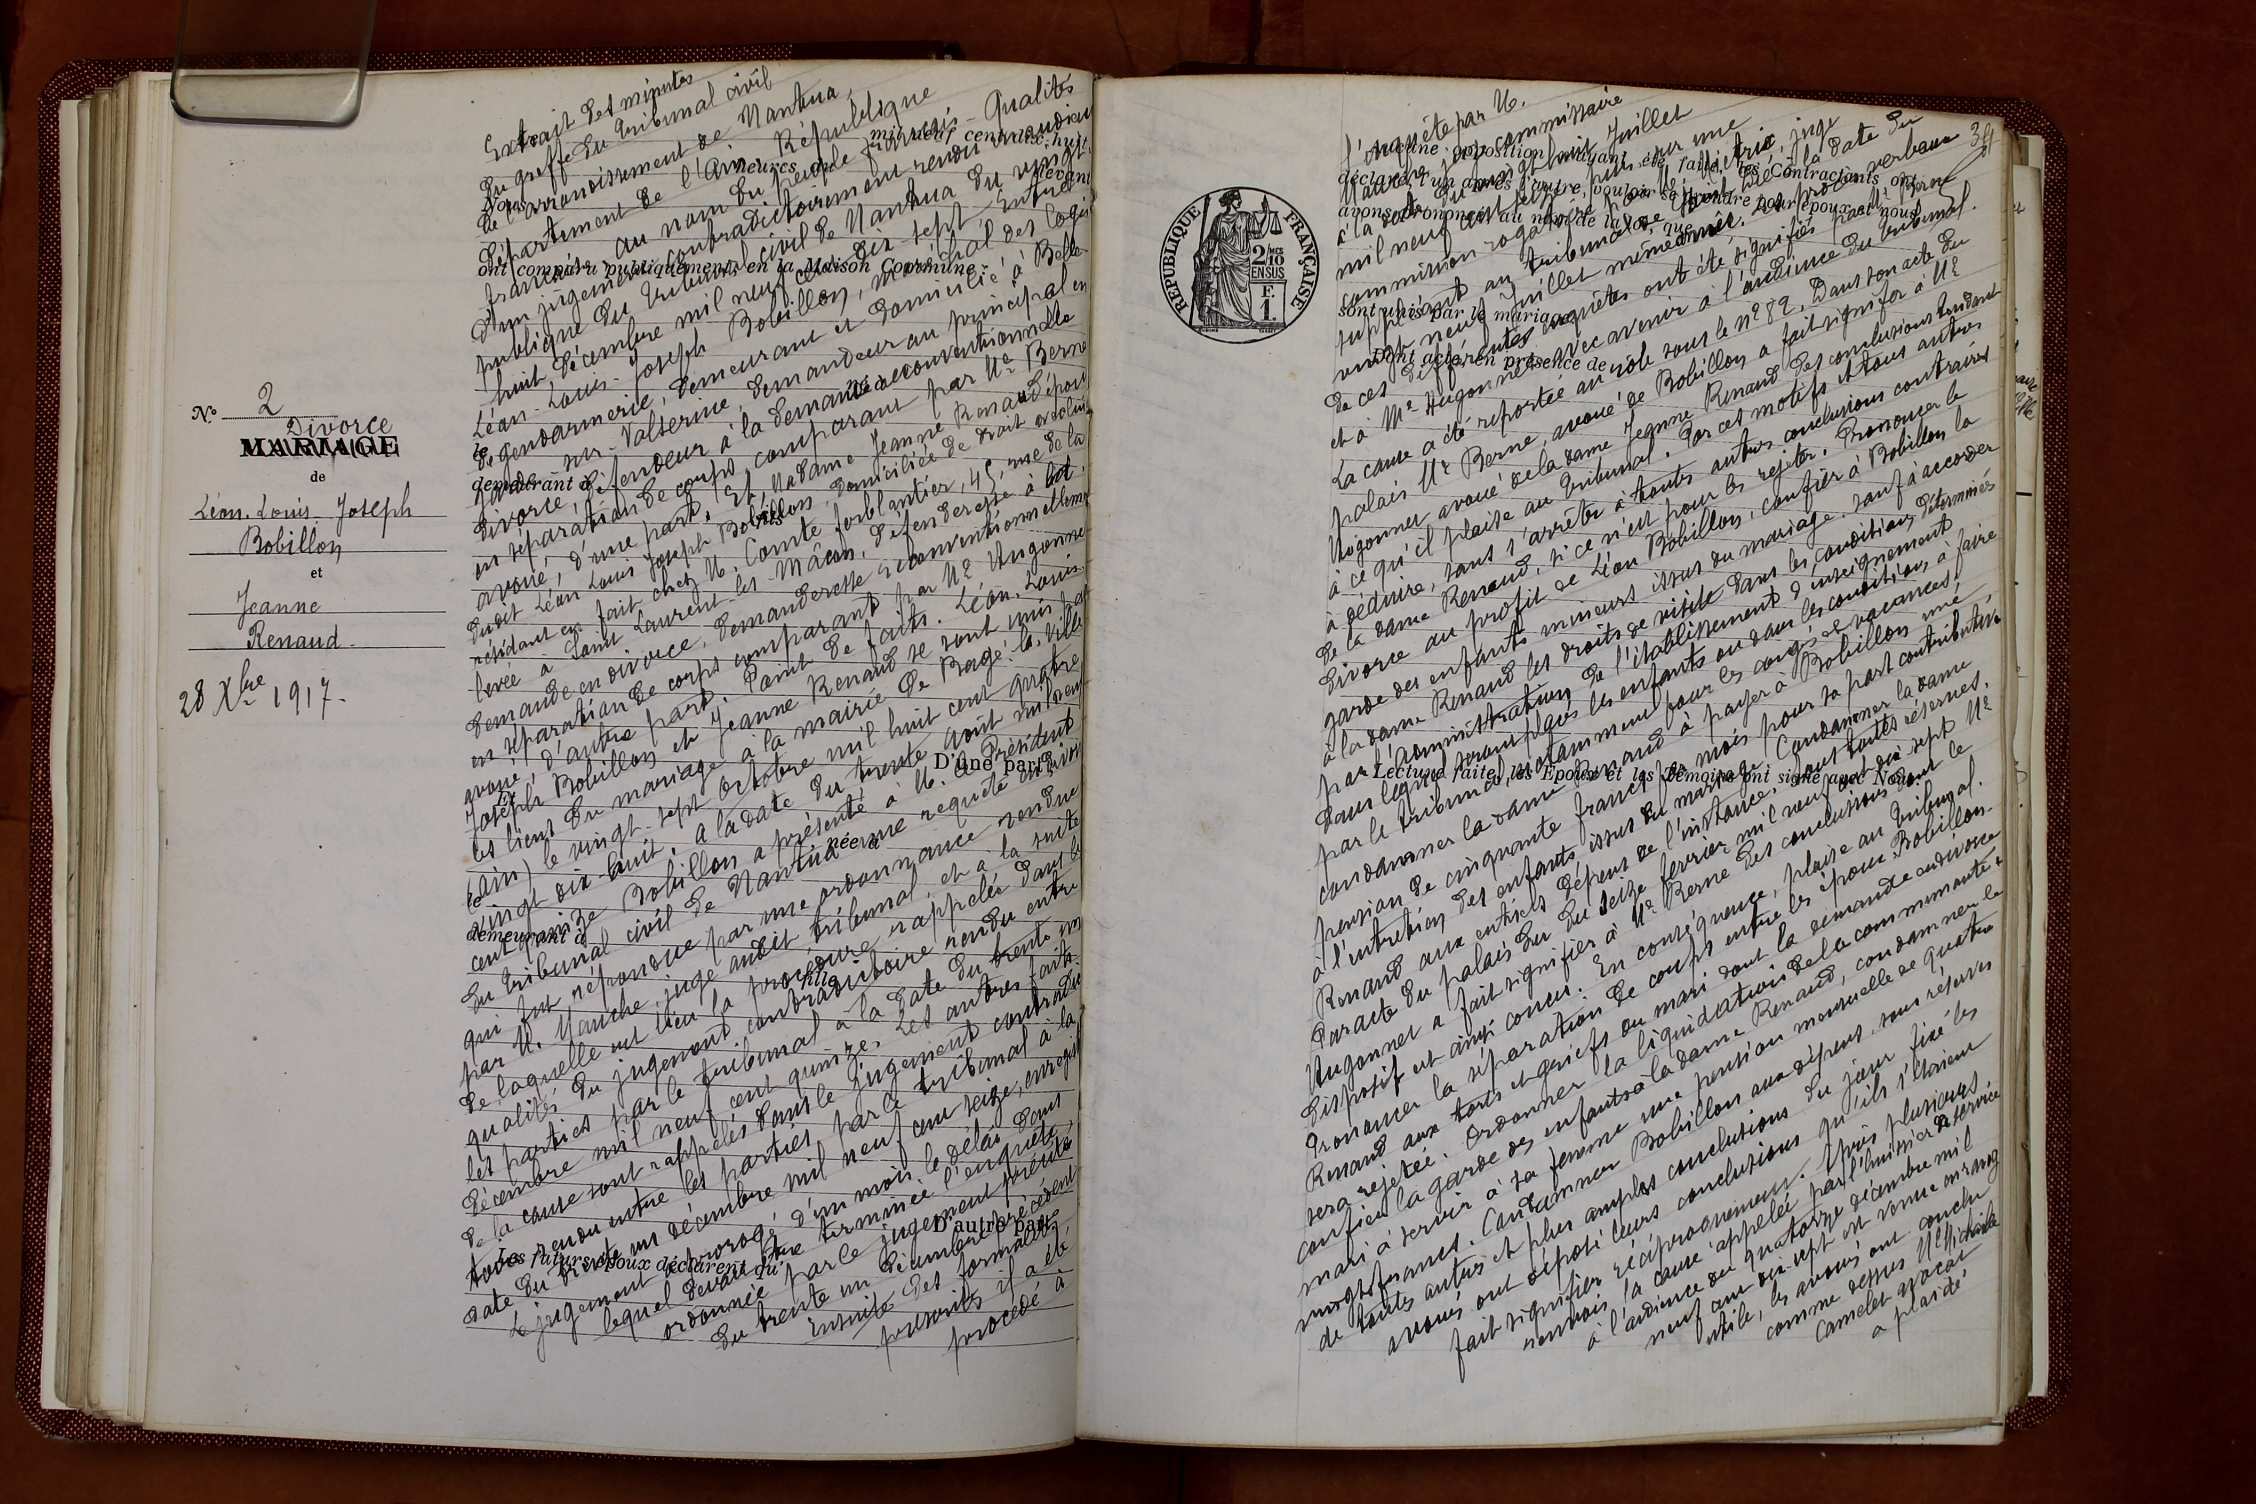 Extrait des minutes
du greffe du Tribunal civil
de l'arrondissement de Nantua,
département de l'Ain République
française au nom du peuple français - Qualités
d'un jugement contradictoirement rendu en audience
publique du Tribunal civil de Nantua du vingt
huit Décembre mil neuf cent dix sept Entre
Léon-Louis-Joseph Bobillon, Maréchal des logis
de gendarmerie, demeurant et domicilié à Belle-
garde sur-Valserine, demandeur au principal en
divorce, défendeur à la demande reconventionnelle
en séparation de corps comparant par Me Berne
avoué, d'une part. Et, Madame Jeanne Renaud épouse
dudit Léon Louis Joseph Bobillon, domiciliée de droit avec lui
résidant en fait chez M. Comte ferblantier, 45, rue de la
levée à Saint Laurent-les-Mâcon, défenderesse à la
demande en divorce, demanderesse reconventionnellement
en séparation de corps comparant par Me Hugonnet
avoué, d'autre part. Point de faits. Léon-Louis
Joseph Bobillon et Jeanne Renaud se sont unis par
les liens du mariage à la mairie de Bagé-la-Ville
(Ain) le vingt-sept octobre mil huit cent quatre
vingt dix-huit. A la date du trente août mil neuf
cent quinze Bobillon a présenté à M. le Président
du tribunal civil de Nantua une requête en divorce
qui fut répondue par une ordonnance rendue
par M. Mauche, juge audit tribunal, et à la suite
de laquelle eut lieu la procédure rappelée dans les
qualités du jugement contradictoire rendu entre
les parties par le tribunal à la date du trente un
décembre mil neuf cent quinze. Les autres faits
de la cause sont rappelés dans le jugement contradic
toire rendu entre les parties par le tribunal à la
date du trente un décembre mil neuf cent seize, enregistré
Le jugement a prorogé d'un mois le délai dans
lequel devait être terminée l'enquête,
ordonnée par le jugement précité
du trente un décembre précédent
Ensuite des formalités
prescrites il a été
procédé à
Nous
mil neuf cent
heures
devant
ont comparu publiquement en la Maison Commune :
le
demeurant à
fils
né à
D'une part,
Et
née à
le
demeurant à
fille
D'autre part,
Les futurs époux déclarent qu'
No 2
Divorce
MARIAGE
de
Léon. Louis Joseph
Bobillon
et
Jeanne
Renaud.
28 Xbre 1917.
34
l'enquête par M.
Mauche, juge commissaire
à la date du vingt huit Juillet
mil neuf cent seize, puis sur une
commission rogatoire par M.
suppléant au tribunal de
vingt neuf Juillet même mois.
de ces différentes enquêtes ont été signifiés par Me Berne
et à Me Hugonnet avec avenir à l'audience du tribunal.
La cause a été reportée au rôle sous le No 82. Dans son acte du
palais Me Berne, avoué de Bobillon a fait signifier à Me
Hugonnet avoué de la dame Jeanne Renaud des conclusions tendant
à ce qu'il plaise au tribunal. Par ces motifs et tous autres
à déduire, sans s'arrêter à toutes autres conclusions contraires
de la dame Renaud, si ce n'est pour les rejeter. Prononcer le
divorce au profit de Léon Bobillon, confier à Bobillon la
garde des enfants mineurs issus du mariage, sauf à accorder
à la dame Renaud les droits de visite dans les conditions déterminées
par l'administration de l'établissement d'enseignement
dans lequel seront placés les enfants ou dans les conditions à faire
par le tribunal, notamment pour les congés et vacances,
condamner la dame Renaud à payer à Bobillon une
pension de cinquante francs par mois pour sa part contributive
à l'entretien des enfants issus du mariage. Condamner la dame
Renaud aux entiers dépens de l'instance. Sous toutes réserves.
Par acte du palais du seize février mil neuf cent dix sept Me
Hugonnet a fait signifier à Me Berne des conclusions dont le
dispositif est ainsi conçu. En conséquence, plaise au tribunal.
Prononcer la séparation de corps entre les époux Bobillon-
Renaud aux torts et griefs du mari dont la demande en divorce
sera rejetée. Ordonner la liquidation de la communauté.
confier la garde des enfants à la dame Renaud, condamner le
mari à servir à sa femme une pension mensuelle de quatre
vingts francs. Condamner Bobillon aux dépens, sous réserves
de toutes autres et plus amples conclusions du jour fixé les
avoués ont déposé leurs conclusions qu'ils s'étaient
fait signifier réciproquement. Après plusieurs
renvois la cause appelée par l'huissier de service
à l'audience du quatorze décembre mil
neuf cent dix-sept est venue en rang
utile, les avoués ont conclu
comme dessus Me Michaile
Camelet avocat
a plaidé
Aucune opposition n'ayant été faite, les Contractants ont
déclaré l'un après l'autre, vouloir se prendre pour époux et nous
avons prononcé au nom de la loi, que
sont unis par le mariage
Dont acte en présence de
Lecture faite, les Epoux et les témoins ont signé avec Nous.
REPUBLIQUE FRANÇAISE
2/10
EN SUS
F.
1.